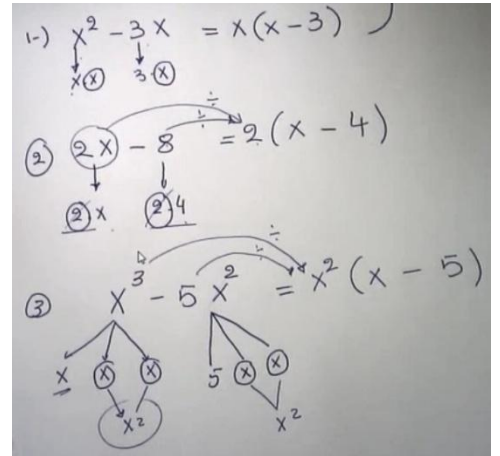 1-) x² - 3x = x(x-3)
x·x 3·x
÷
÷
② 2x - 8 = 2(x - 4)
2 x 2·4
÷
÷
③ x³ - 5x² = x²(x - 5)
x x x 5 x x
x² x²